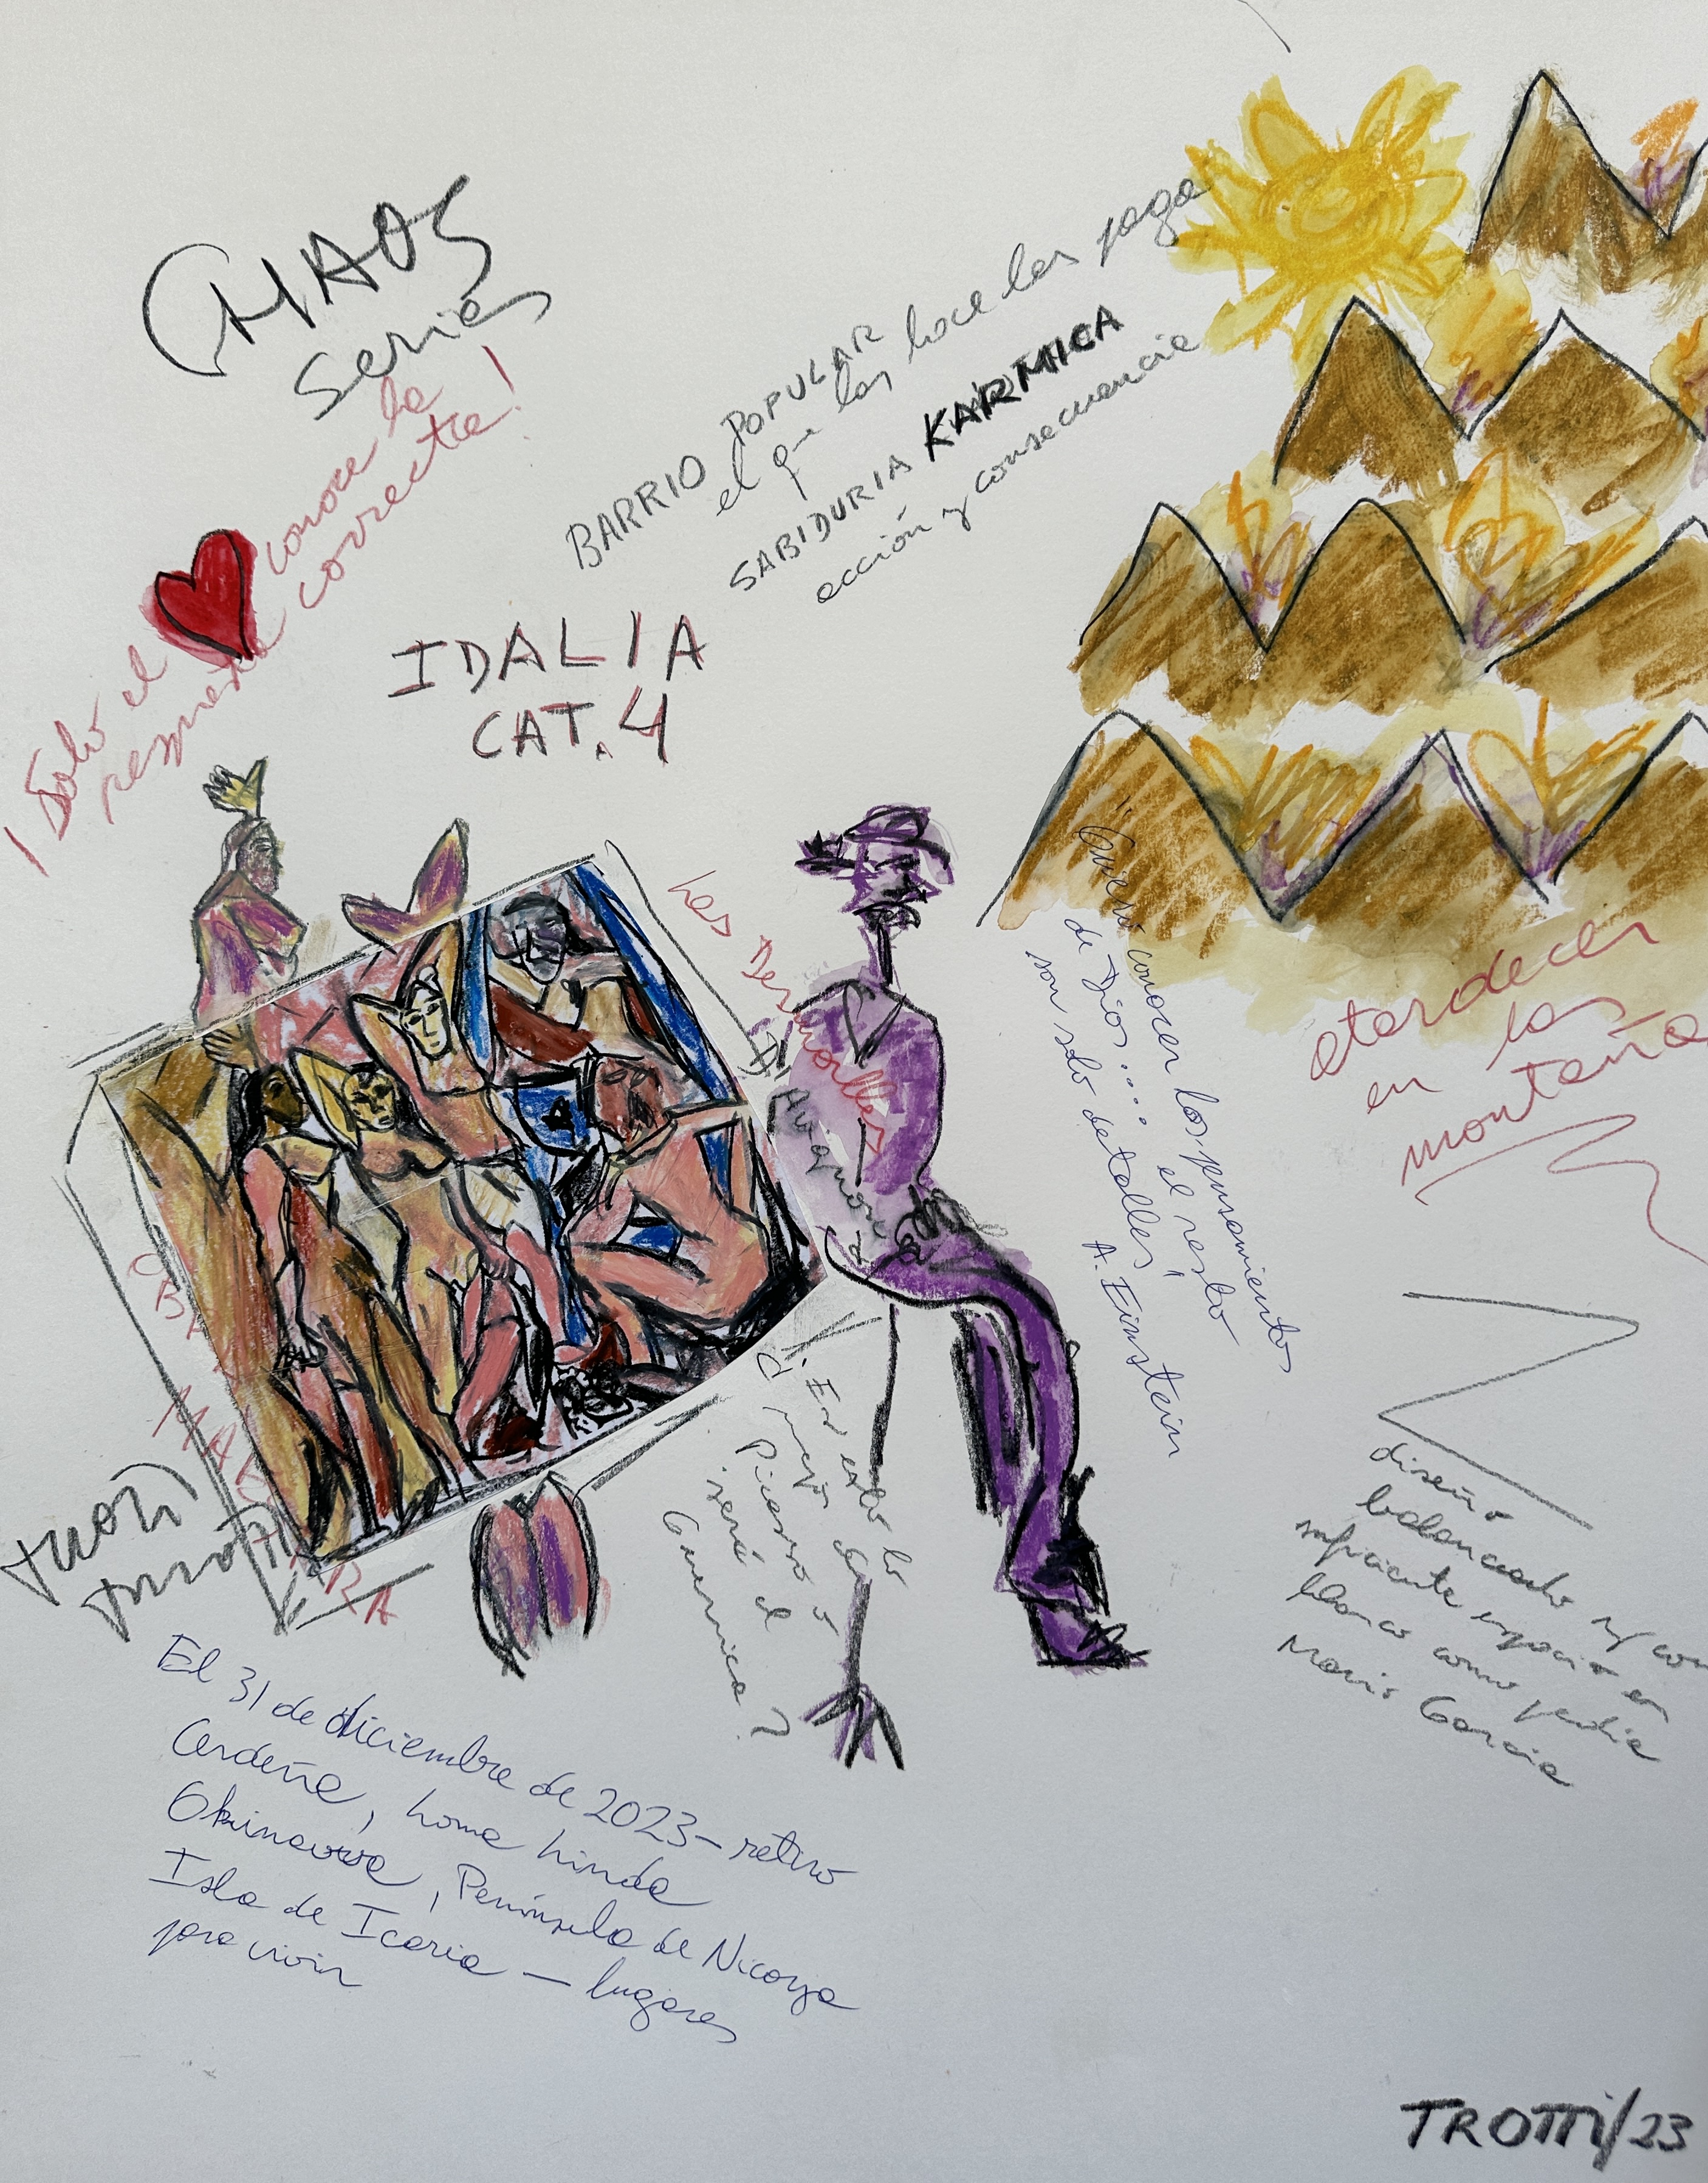 CHAOS
Series
¡Solo el
conoce la
respuesta
correcta!
BARRIO POPULAR
el que las hace las paga
SABIDURIA KARMICA
acción y consecuencia
IDALIA
CAT. 4
Les Desmoiselles
d'Avignon
"Quiero conocer los pensamientos
de Dios.... el resto
son solo detalles"
A. Einstein
atardecer
en las
montaña
OBRA
MAESTRA
¿Es esta la
mejor de
Picasso o
será el
Guernica?
diseño
balanceado y con
suficiente espacio en
blanco como pedia
Mario Garcia
El 31 de diciembre de 2023 - retiro
Cerdeña, Loma Linda
Okinawa, Península de Nicoya
Isla de Icaria - lugares
para vivir
TROTTI/23